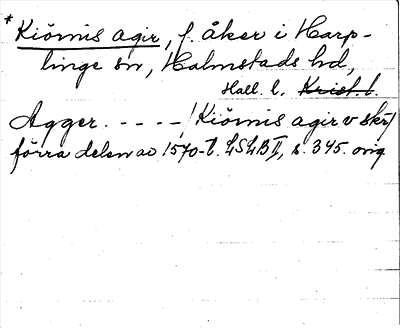 * Kiörnis agir, f. åker i Harp-
linge sn, Halmstads hd,
Hall. l. Krist. l.
Agger. - - - - / Kiörnis agir v skr /
förra delen av 1570-t. LSLB II, s. 345. orig.